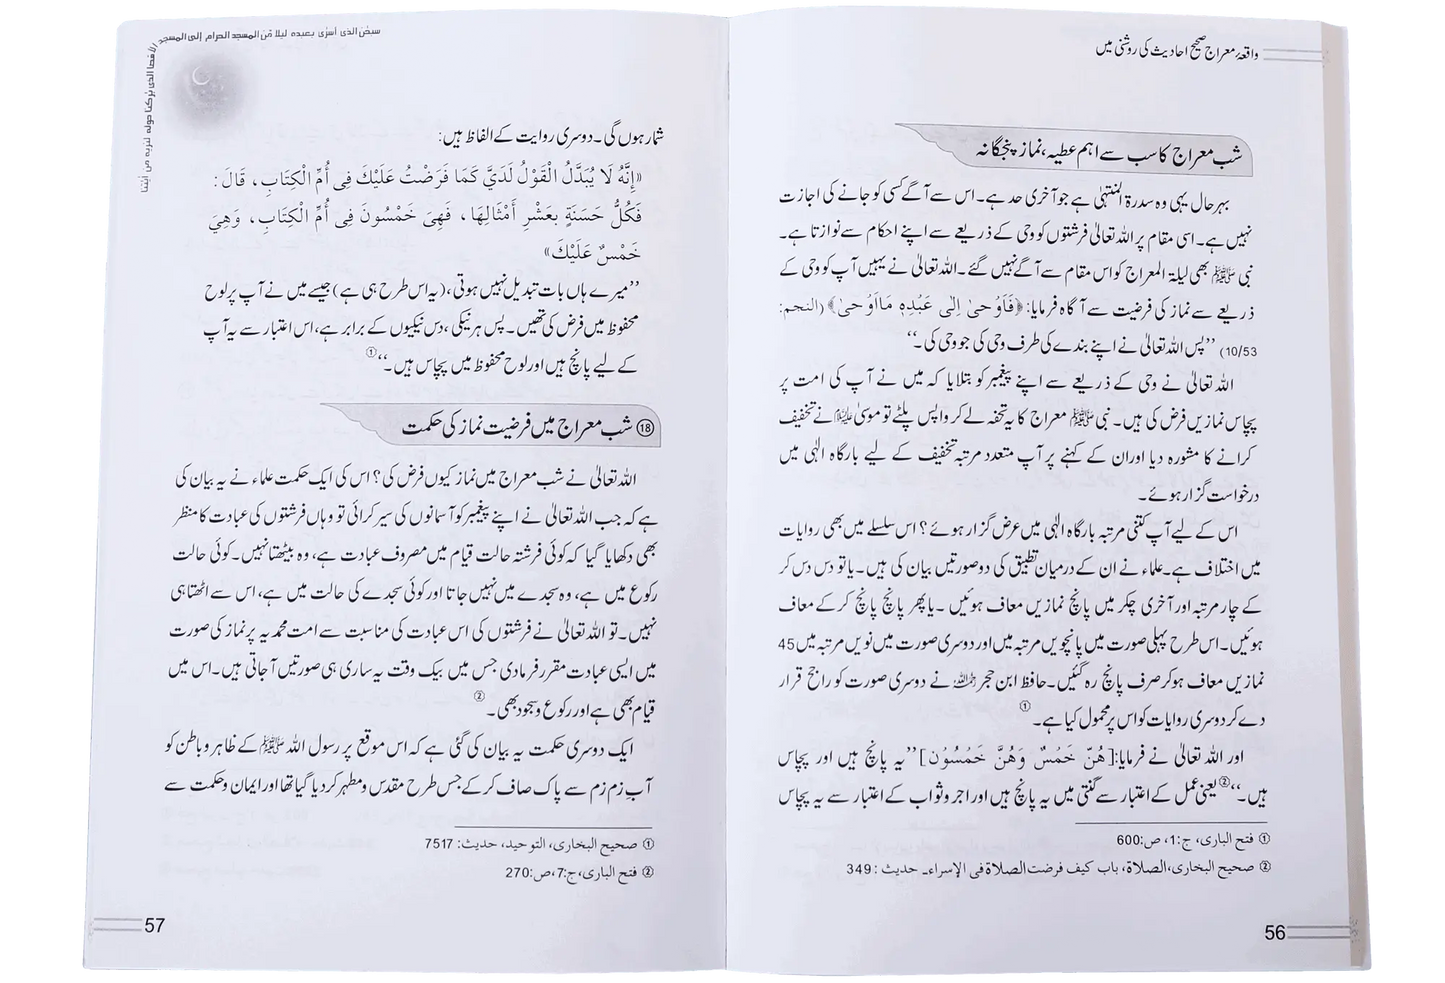 واقعۂ معراج صحیح احادیث کی روشنی میں
شب معراج کا سب سے اہم عطیہ، نماز پنجگانہ
بہرحال یہی وہ سدرۃ المنتہیٰ ہے جو آخری حد ہے۔ اس سے آگے کسی کو جانے کی اجازت
نہیں ہے۔ اسی مقام پر اللہ تعالیٰ فرشتوں کو وحی کے ذریعے سے اپنے احکام سے نوازتا ہے۔
نبی ﷺ بھی لیلۃ المعراج کو اس مقام سے آگے نہیں گئے۔ اللہ تعالیٰ نے یہیں آپ کو وحی کے
ذریعے سے نماز کی فرضیت سے آگاہ فرمایا: ﴿فَاَوْحیٰ اِلیٰ عَبْدِہٖ مَااَوْحیٰ﴾ (النجم:
10/53) ’’پس اللہ تعالیٰ نے اپنے بندے کی طرف وحی کی جو وحی کی۔‘‘
اللہ تعالیٰ نے وحی کے ذریعے سے اپنے پیغمبر کو بتلایا کہ میں نے آپ کی امت پر
پچاس نمازیں فرض کی ہیں۔ نبی ﷺ معراج کا یہ تحفہ لے کر واپس پلٹے تو موسیٰ علیہ السلام نے تخفیف
کرانے کا مشورہ دیا اور ان کے کہنے پر آپ متعدد مرتبہ تخفیف کے لیے بارگاہ الٰہی میں
درخواست گزار ہوئے۔
اس کے لیے آپ کتنی مرتبہ بارگاہ الٰہی میں عرض گزار ہوئے؟ اس سلسلے میں بھی روایات
میں اختلاف ہے۔ علماء نے ان کے درمیان تطبیق کی دو صورتیں بیان کی ہیں۔ یا تو دس دس کر
کے چار مرتبہ اور آخری چکر میں پانچ نمازیں معاف ہوئیں۔ یا پھر پانچ پانچ کر کے معاف
ہوئیں۔ اس طرح پہلی صورت میں پانچویں مرتبہ میں اور دوسری صورت میں نویں مرتبہ میں 45
نمازیں معاف ہو کر صرف پانچ رہ گئیں۔ حافظ ابن حجر رحمہ اللہ نے دوسری صورت کو راجح قرار
دے کر دوسری روایات کو اس پر محمول کیا ہے۔①
اور اللہ تعالیٰ نے فرمایا: [هُنَّ خَمْسٌ وَهُنَّ خَمْسُوْنَ] ’’یہ پانچ ہیں اور پچاس
ہیں۔‘‘② یعنی عمل کے اعتبار سے گنتی میں یہ پانچ ہیں اور اجر و ثواب کے اعتبار سے یہ پچاس
① فتح الباری، ج:1، ص:600
② صحیح البخاری، الصلاة، باب کیف فرضت الصلاة فی الإسراء۔ حدیث : 349
56
سبحٰن الذی أسرٰی بعبده لیلا من المسجد الحرام إلی المسجد الأقصا الذی بٰرکنا حوله لنریه من اٰیٰتنا
شمار ہوں گی۔ دوسری روایت کے الفاظ ہیں:
«إِنَّهُ لَا يُبَدَّلُ الْقَوْلُ لَدَيَّ كَمَا فَرَضْتُ عَلَيْكَ فِي أُمِّ الْكِتَابِ ، قَالَ :
فَكُلُّ حَسَنَةٍ بِعَشْرِ أَمْثَالِهَا ، فَهِيَ خَمْسُونَ فِي أُمِّ الْكِتَابِ ، وَهِيَ
خَمْسٌ عَلَيْكَ»
’’میرے ہاں بات تبدیل نہیں ہوتی، (یہ اس طرح ہی ہے) جیسے میں نے آپ پر لوح
محفوظ میں فرض کی تھیں۔ پس ہر نیکی، دس نیکیوں کے برابر ہے، اس اعتبار سے یہ آپ
کے لیے پانچ ہیں اور لوح محفوظ میں پچاس ہیں۔‘‘①
⑱ شب معراج میں فرضیت نماز کی حکمت
اللہ تعالیٰ نے شب معراج میں نماز کیوں فرض کی؟ اس کی ایک حکمت علماء نے یہ بیان کی
ہے کہ جب اللہ تعالیٰ نے اپنے پیغمبر کو آسمانوں کی سیر کرائی تو وہاں فرشتوں کی عبادت کا منظر
بھی دکھایا گیا کہ کوئی فرشتہ حالت قیام میں مصروف عبادت ہے، وہ بیٹھتا نہیں۔ کوئی حالت
رکوع میں ہے، وہ سجدے میں نہیں جاتا اور کوئی سجدے کی حالت میں ہے، اس سے اٹھتا ہی
نہیں۔ تو اللہ تعالیٰ نے فرشتوں کی اس عبادت کی مناسبت سے امت محمدیہ پر نماز کی صورت
میں ایسی عبادت مقرر فرما دی جس میں بیک وقت یہ ساری ہی صورتیں آجاتی ہیں۔ اس میں
قیام بھی ہے اور رکوع و سجود بھی۔②
ایک دوسری حکمت یہ بیان کی گئی ہے کہ اس موقع پر رسول اللہ ﷺ کے ظاہر و باطن کو
آب زم زم سے پاک صاف کر کے جس طرح مقدس و مطہر کر دیا گیا تھا اور ایمان و حکمت سے
① صحیح البخاری، التوحید، حدیث: 7517
② فتح الباری، ج:7، ص:270
57